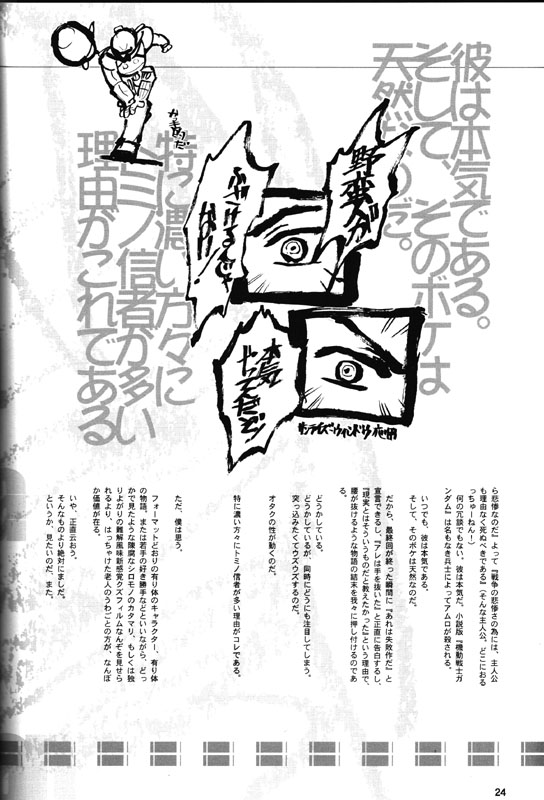 彼は本気である。
そして、そのボケは
天然なのだ。
特に濃い方々に
トミノ信者が多い
理由がこれである
野蛮人が
ふざけるんじゃ
ない!
本気
ら悲惨なのだ』よって『戦争の悲惨さの為には、主人公
も理由なく死ぬべきである』（そんな主人公、どこにおる
っちゅーねん！）
何の冗談でもない、彼は本気だ。小説版『機動戦士ガ
ンダム』は名もなき兵士によってアムロが殺される。
いつでも、彼は本気である。
そして、そのボケは天然なのだ。
だから、最終回が終った瞬間に『あれは失敗作だ』と
宣言できるし、『アレは手を抜いた』と正直に告白するし、
『現実とはそういうものだと教えたかった』という理由で、
腰が抜けるような物語の結末を我々に押し付けるのであ
る。
どうかしている。
どうかしているが、同時にどうにも注目してしまう。
突っ込みたくてウズウズするのだ。
オタクの性が動くのだ。
特に濃い方々にトミノ信者が多い理由がコレである。
ただ、僕は思う。
フォーマットどおりの有り体のキャラクター、有り体
の物語、または若手の好き勝手などといいながら、どっ
かで見たような陳腐なシロモノのカタマリ、もしくは独
りよがりの難解風味新感覚クズフィルムなんぞを見せら
れるより、はっちゃけた老人のうわごとの方が、なんぼ
か価値が在る。
いや、正直云おう。
そんなものより絶対にましだ。
というか、見たいのだ。また。
24